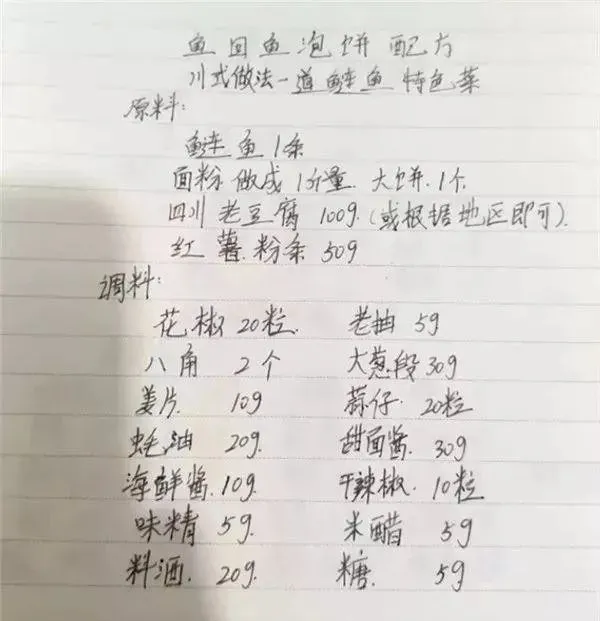 鱼回鱼泡饼配方
川式做法一道鲢鱼特色菜
原料:
鲢鱼1条
面粉做成1斤量.大饼.1个
四川老豆腐100g.(或根据地区即可).
红薯.粉条50g
调料:
花椒20粒. 老抽5g
八角2个 大葱段30g
姜片.10g 蒜仔.20粒
蚝油20g. 甜面酱.30g
海鲜酱.10g. 干辣椒.10粒
味精5g. 米醋5g
料酒.20g. 糖.5g